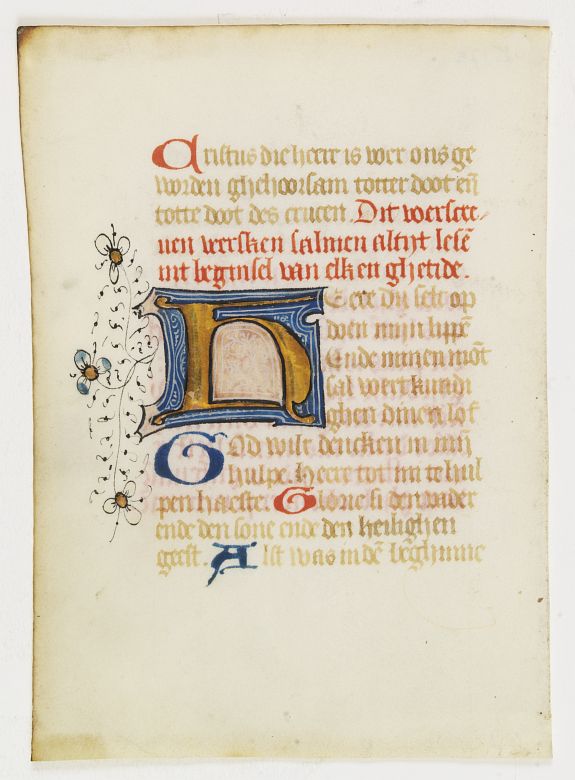 Cristus die heere is voer ons ge
worden ghehoorsam totter doot eñ
totte doot des crucen. Dit voerscre/
uen versken salmen altijt lesē
int beginsel van elken ghetide.
Heere du selt op
doen mijn lippē
Ende minen mōt
sal vert kundi
ghen dinen lof
God wilt dencken in mij
hulpe. Heere tot mi te hul
pen haeste. Glorie si den vader
ende den sone ende den heilighen
geest. Alst was in dē beghinne